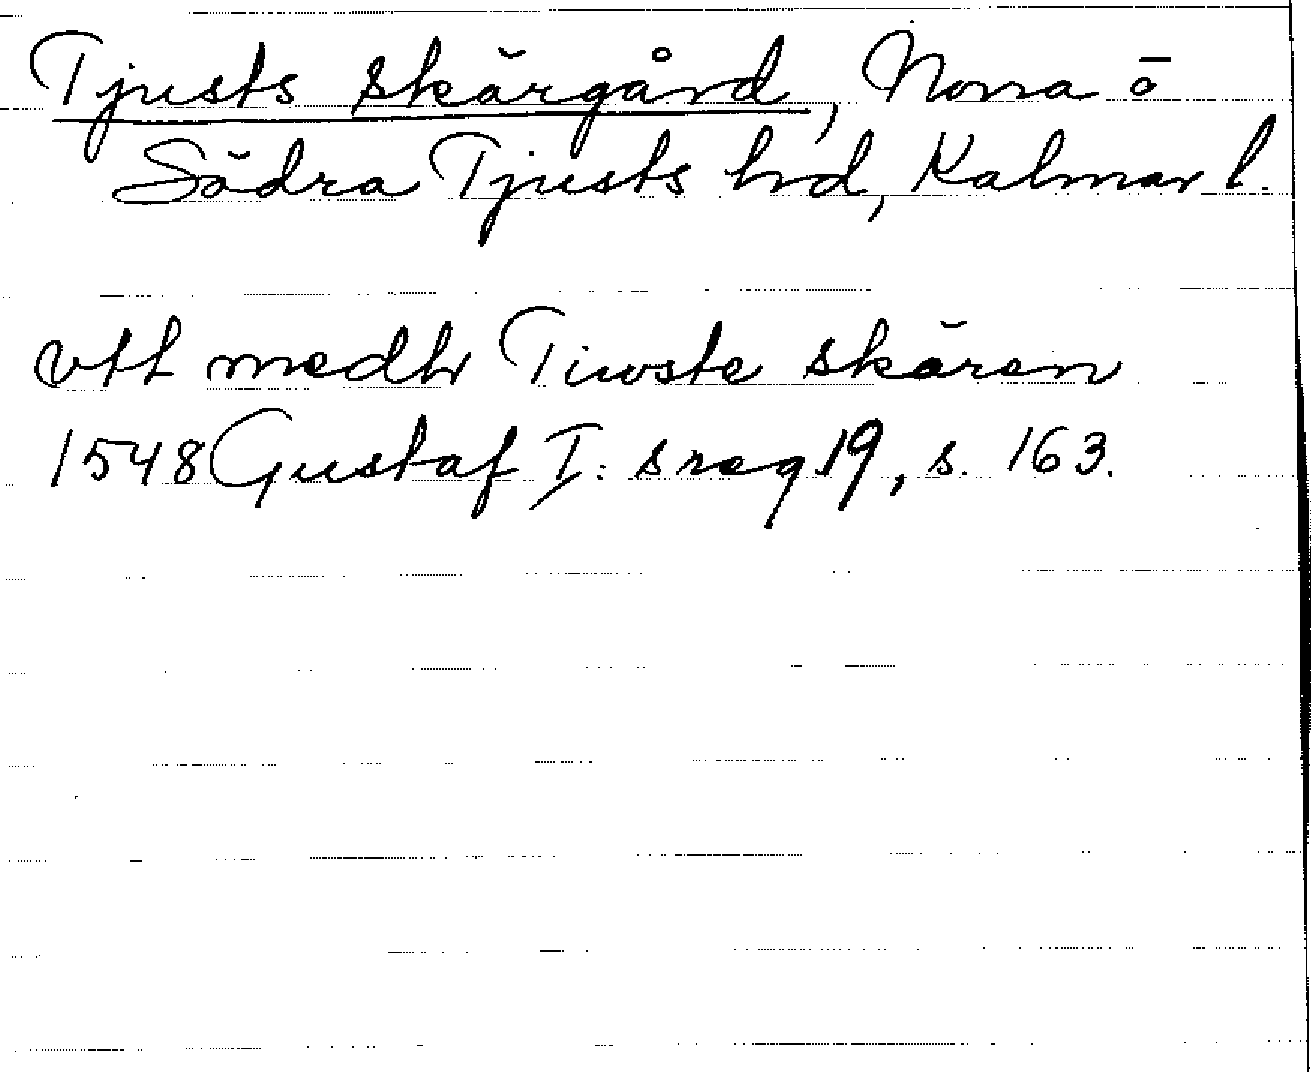 Tjusts skärgård, Norra o
Södra Tjusts hd, Kalmar l.
vtt medh Tiwste skären
1548 Gustaf I: s reg 19, s. 163.